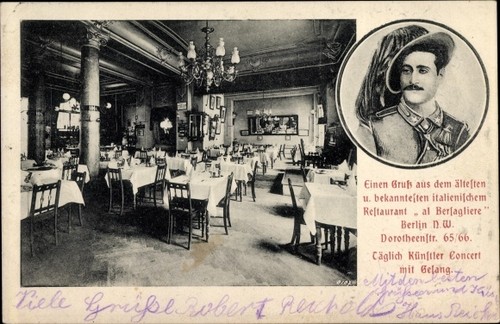 Einen Gruß aus dem ältesten
u. bekanntesten italienischem
Restaurant „al Bersagliere“
Berlin N.W.
Dorotheenstr. 65/66.
Täglich Künstler Concert
mit Gesang.
Mit den besten
Viele Grüße Robert
Hans